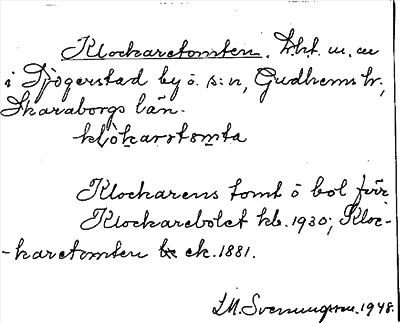 Klockaretomten. Lht. m. m
i Tjogerstad by o. s:n, Gudhems hr,
Skaraborgs län.
klòkarstomta
Klockarens tomt o bol för
Klockarebolet kb. 1930; Kloc-
-karetomten ek. 1881.
I.M. Svenungsson. 1948.